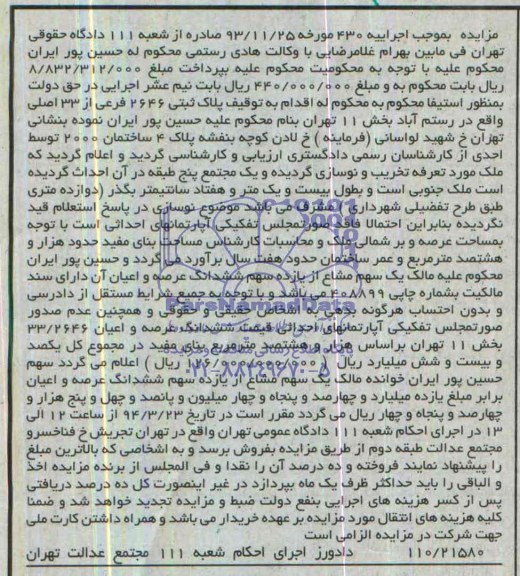 مزایده بموجب اجراییه ۴۳۰ مورخه ۹۳/۱۱/۲۵ صادره از شعبه ۱۱۱ دادگاه حقوقی
تهران فی مابین بهرام غلامرضایی با وکالت هادی رستمی محکوم له حسین پور ایران
محکوم علیه با توجه به محکومیت محکوم علیه بپرداخت مبلغ ۸/۸۳۲/۳۱۲/۰۰۰
ریال بابت محکوم به و مبلغ ۴۴۰/۰۰۰/۰۰۰ ریال بابت نیم عشر اجرایی در حق دولت
بمنظور استیفا محکوم به محکوم له اقدام به توقیف پلاک ثبتی ۲۶۴۶ فرعی از ۳۳ اصلی
واقع در رستم آباد بخش ۱۱ تهران بنام محکوم علیه حسین پور ایران نموده بنشانی
تهران خ شهید لواسانی (فرمانیه) خ لادن کوچه بنفشه پلاک ۴ ساختمان ۲۰۰۰ توسط
احدی از کارشناسان رسمی دادگستری ارزیابی و کارشناسی گردید و اعلام گردید که
ملک مورد تعرفه تخریب و نوسازی گردیده و یک مجتمع پنج طبقه در آن احداث گردیده
است ملک جنوبی است و بطول بیست و یک متر و هفتاد سانتیمتر بگذر (دوازده متری
طبق طرح تفضیلی شهرداری) مشرف می باشد موضوع نوسازی در پاسخ استعلام قید
نگردیده بنابراین احتمالا فاقد صورتمجلس تفکیکی آپارتمانهای احداثی است با توجه
بمساحت عرصه و بر شمالی ملک و محاسبات کارشناس مساحت بنای مفید حدود هزار و
هشتصد مترمربع و عمر ساختمان حدود هفت سال برآورد می گردد و حسین پور ایران
محکوم علیه مالک یک سهم مشاع از یازده سهم ششدانگ عرصه و اعیان آن دارای سند
مالکیت بشماره چاپی ۴۰۸۸۹۹ می باشد و با توجه به جمیع شرایط مستقل از دادرسی
و بدون احتساب هرگونه بدهی به اشخاص حقیقی و حقوقی و همچنین عدم صدور
صورتمجلس تفکیکی آپارتمانهای احداثی قیمت ششدانگ عرصه و اعیان ۳۳/۲۶۴۶
بخش ۱۱ تهران براساس هزار و هشتصد مترمربع بنای مفید در مجموع کل یکصد
و بیست و شش میلیارد ریال ریال) اعلام می گردد سهم
حسین پور ایران خوانده مالک یک سهم مشاع از یازده سهم ششدانگ عرصه و اعیان
برابر مبلغ یازده میلیارد و چهارصد و پنجاه و چهار میلیون و پانصد و چهل و پنج هزار و
چهارصد و پنجاه و چهار ریال می گردد مقرر است در تاریخ ۹۴/۳/۲۳ از ساعت ۱۲ الی
۱۳ در اجرای احکام شعبه ۱۱۱ دادگاه عمومی تهران واقع در تهران تجریش خ فناخسرو
مجتمع عدالت طبقه دوم از طریق مزایده بفروش برسد و به اشخاصی که بالاترین مبلغ
را پیشنهاد نمایند فروخته و ده درصد آن را نقدا و فی المجلس از برنده مزایده اخذ
و الباقی را باید حداکثر ظرف یک ماه بپردازد در غیر اینصورت کل ده درصد دریافتی
پس از کسر هزینه های اجرایی بنفع دولت ضبط و مزایده تجدید خواهد شد و ضمنا
کلیه هزینه های انتقال مورد مزایده بر عهده خریدار می باشد و همراه داشتن کارت ملی
جهت شرکت در مزایده الزامی است
۱۱۰/۲۱۵۸۰ دادورز اجرای احکام شعبه ۱۱۱ مجتمع عدالت تهران
ParsNamadData